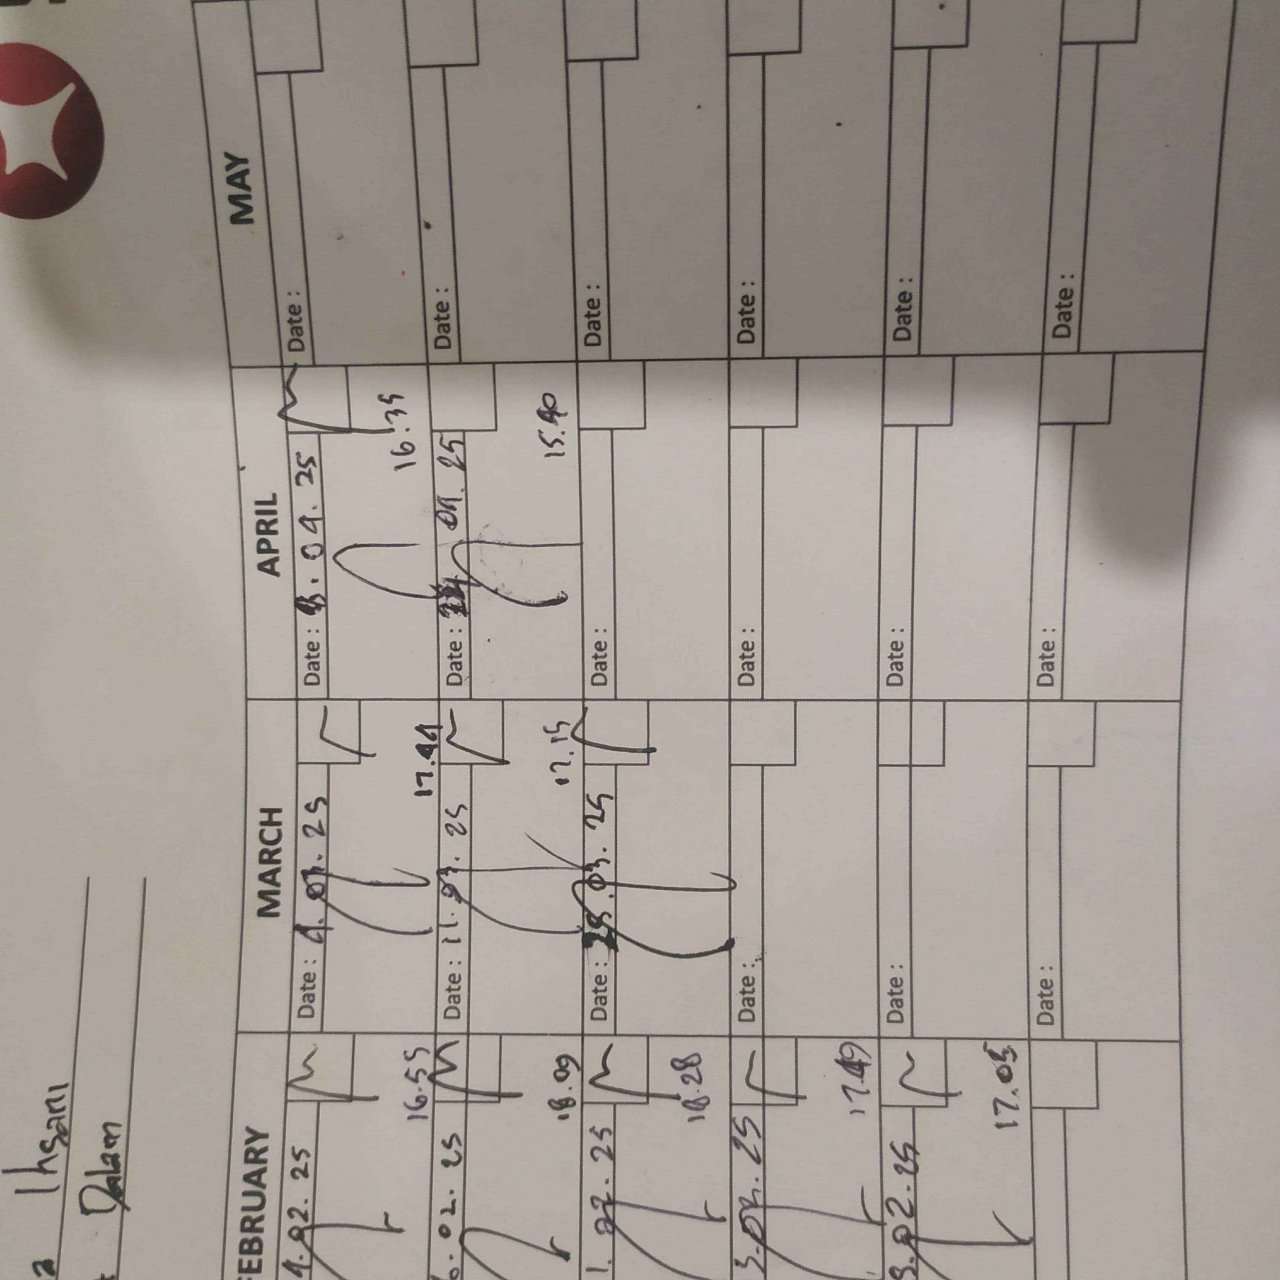 Ihsani
Dalam
FEBRUARY MARCH APRIL MAY
.02.25 Date : 4.03.25 Date : 8.04.25 Date :
16.55 17.44 16.35
.02.25 Date : 11.03.25 Date : 04.25 Date :
18.09 17.15 15.40
.25 Date : 25.03.25 Date : Date :
18.28
.02.25 Date : Date : Date :
17.49
.02.25 Date : Date : Date :
17.05
Date : Date : Date :